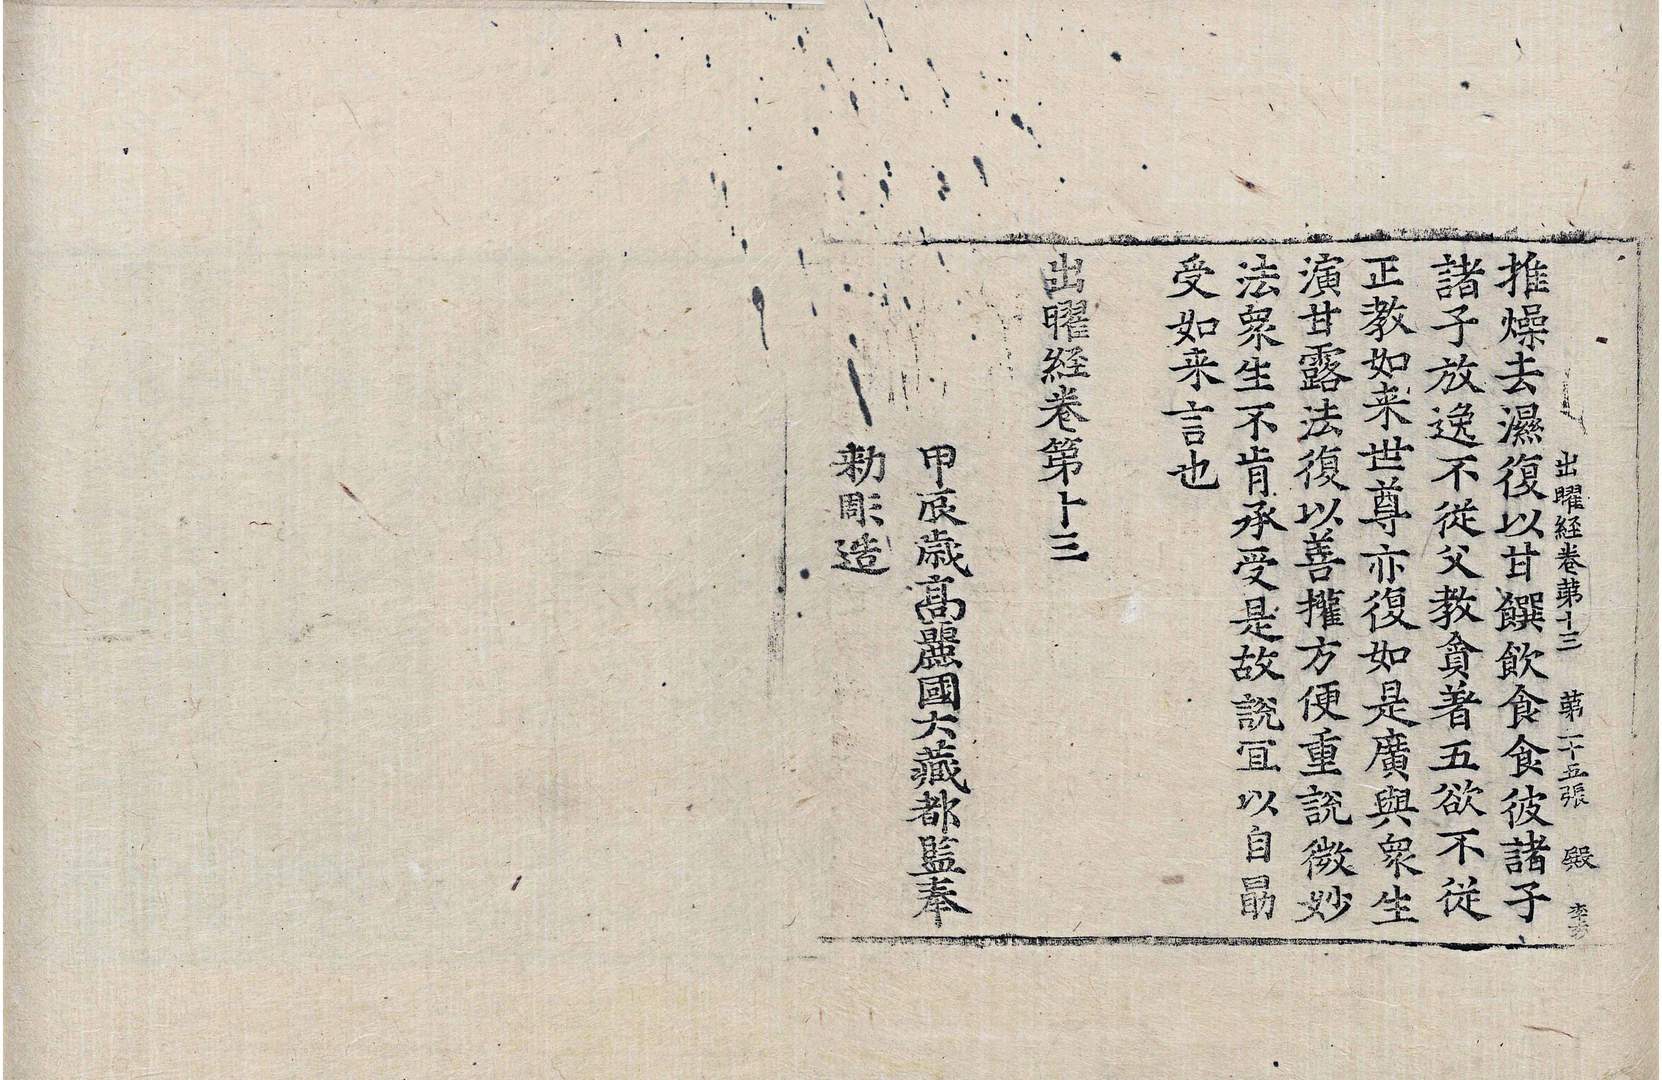 出曜経卷第十三 第二十五張 殿
推燥去濕復以甘饌飲食食彼諸子
諸子放逸不從父教貪著五欲不從
正教如来世尊亦復如是廣與衆生
演甘露法復以善權方便重說微妙
法衆生不肯承受是故說宜以自勗
受如来言也
出曜経卷第十三
甲辰歳高麗國大藏都監奉
勑彫造